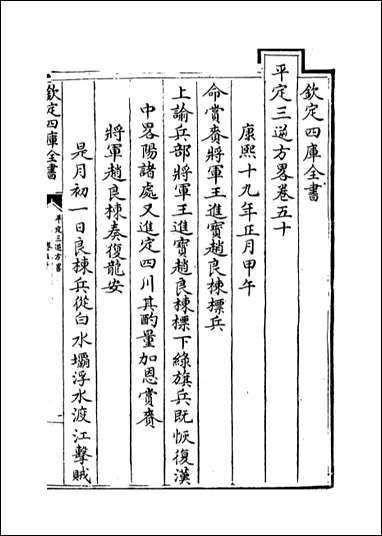 欽定四庫全書
平定三逆方畧卷五十
康熙十九年正月甲午
命賞賚將軍王進寶趙良棟標兵
上諭兵部將軍王進寶趙良棟標下綠旗兵既恢復漢
中畧陽諸處又進定四川其酌量加恩賞賚
將軍趙良棟奏復龍安
是月初一日良棟兵從白水壩浮水渡江擊賊
欽定四庫全書
平定三逆方畧